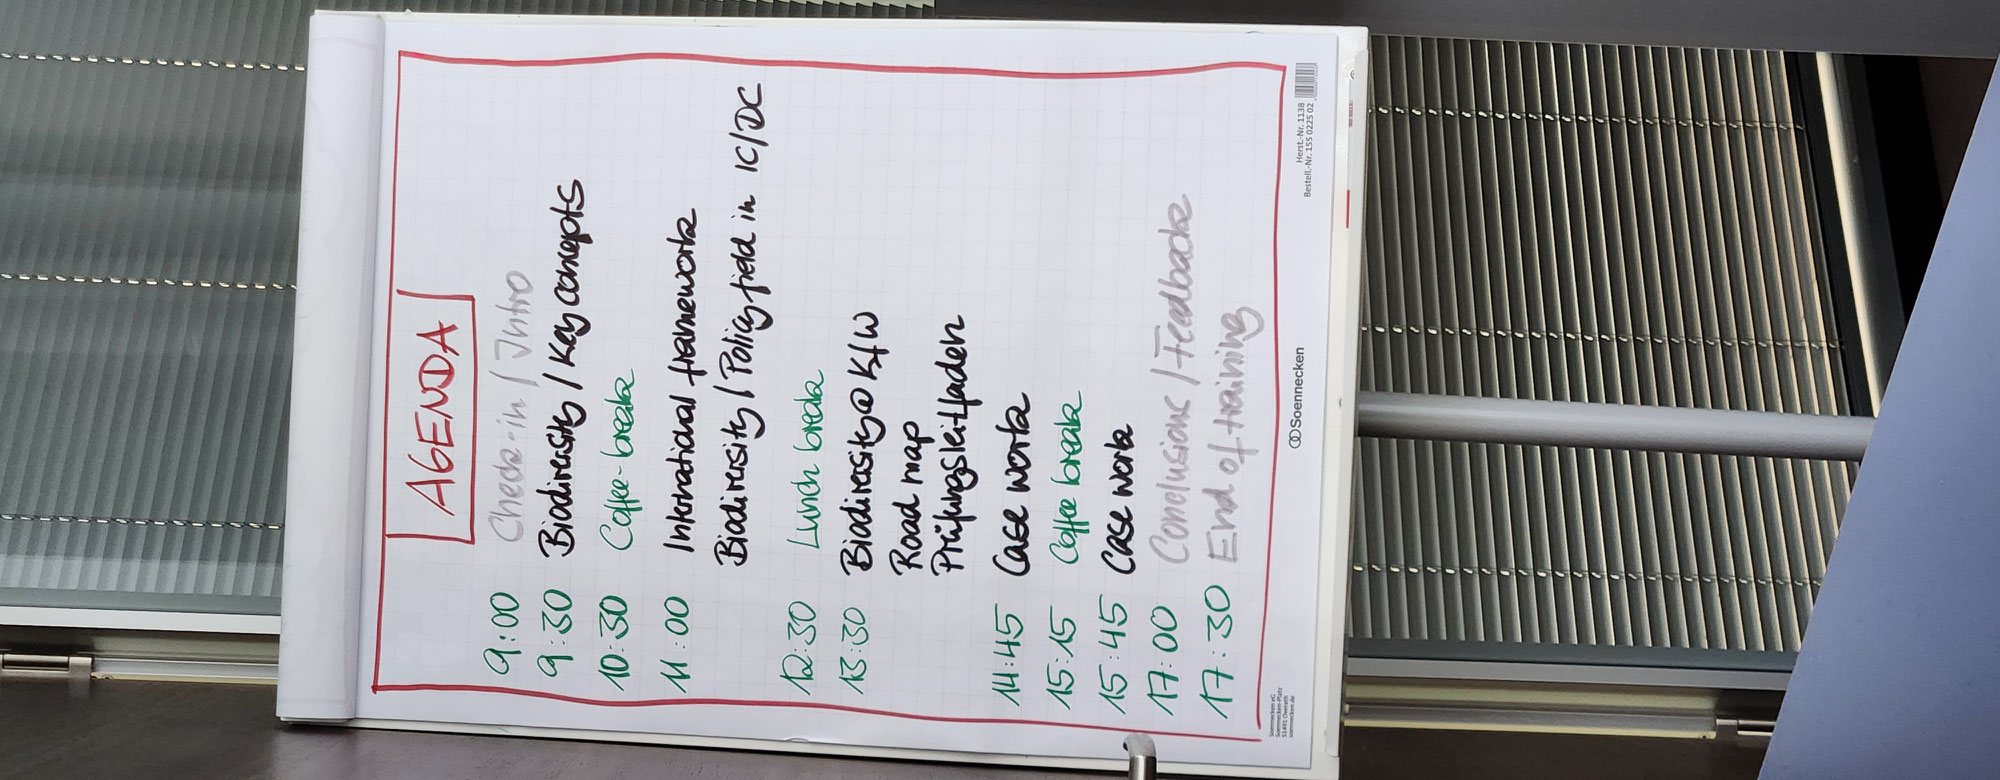 AGENDA
9:00 Check-in / Intro
9:30 Biodiversity / Key concepts
10:30 Coffee-break
11:00 International framework
Biodiversity / Policy field in IC/DC
12:30 Lunch break
13:30 Biodiversity@KfW
Road map
Prüfungsleitfaden
14:45 Case work
15:15 Coffee break
15:45 Case work
17:00 Conclusions / Feedback
17:30 End of training
Soennecken eG
Soennecken-Platz
51491 Overath
soennecken.de
Soennecken
Herst.-Nr. 1138
Bestell.-Nr. 155 0225 02